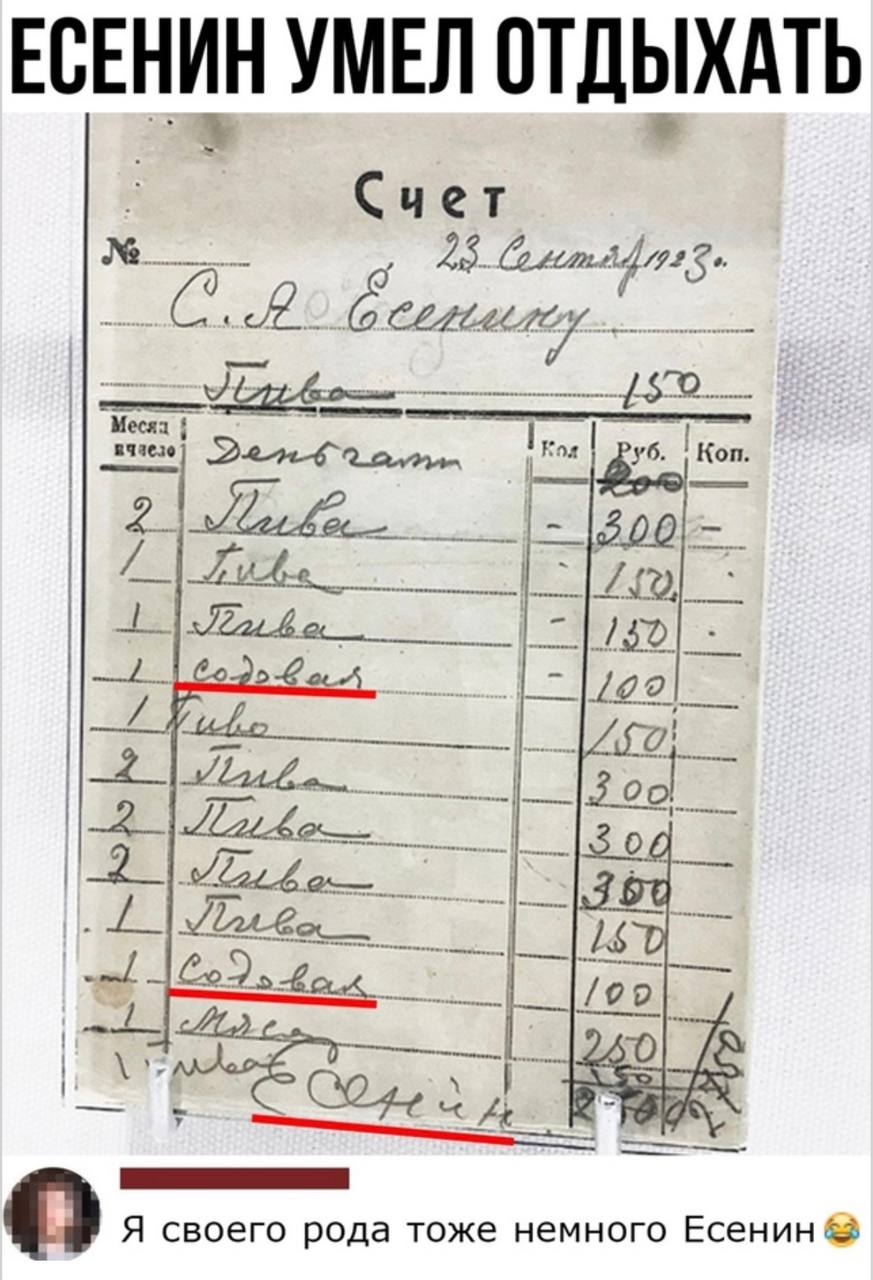 ЕСЕНИН УМЕЛ ОТДЫХАТЬ
Счет
№ 23 Сентяб 1923г.
С. А Есенину
Пива 150
Месяц и число Деньгами Кол Руб. Коп.
200
2 Пива - 300 -
1 Пива - 150 -
1 Пива - 150 -
1 содовая - 100
1 Пиво 150
2 Пива 300
2 Пива 300
2 Пива 300
1 Пива 150
1 Содовая 100
1 Мясо 250
1 Пива 150
Есенин
Я своего рода тоже немного Есенин😂